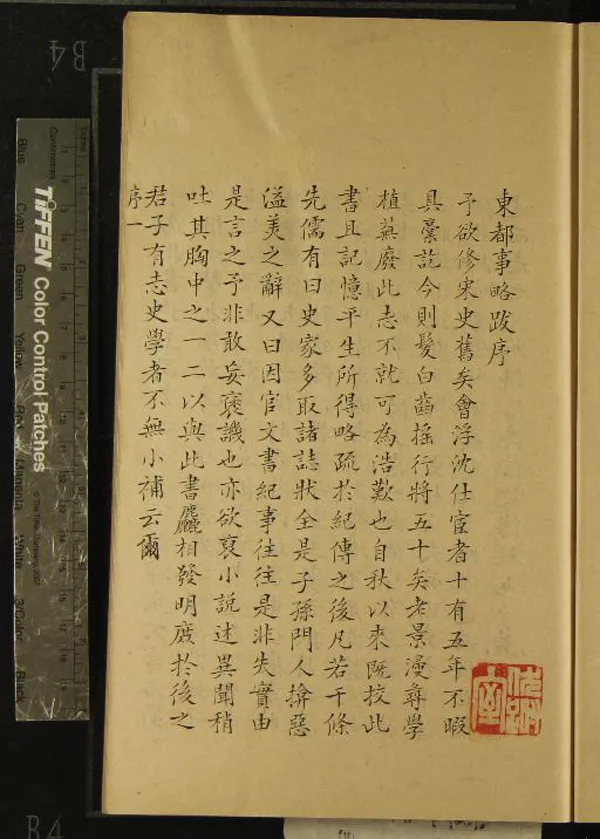 東都事略跋序
予欲修宋史舊矣會浮沈仕宦者十有五年不暇
具稾訖今則髮白齒搖行將五十矣老景漫尋學
植蕪廢此志不就可為浩歎也自秋以來既挍此
書且記憶平生所得略疏於紀傳之後凡若干條
先儒有曰史家多取諸誌狀全是子孫門人揜惡
溢美之辭又曰因官文書紀事往往是非失實由
是言之予非敢妄褒譏也亦欲裒小説述異聞稍
吐其胸中之一二以與此書麤相發明庶於後之
君子有志史學者不無小補云爾
序一
TIFFEN Color Control Patches
Blue
Cyan
Green
Yellow
Red
Magenta
White
3/Color
Black
Centimetres
B4
B4